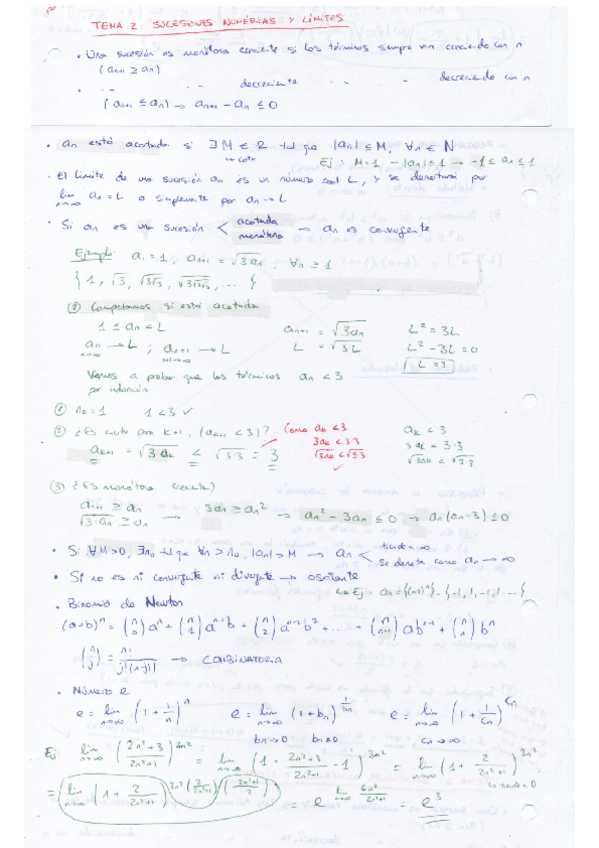 TEMA 2: SUCESIONES NUMÉRICAS Y LÍMITES
• Una sucesión es monótona creciente si los términos siempre van creciendo con n
(aₙ₊₁ ≥ aₙ)
• decreciente decreciendo con n
(aₙ₊₁ ≤ aₙ) → aₙ₊₁ - aₙ ≤ 0
• aₙ está acotada si ∃ M ∈ R tal que |aₙ| ≤ M, ∀n ∈ N
↳ cota Ej: M=1 → |aₙ| ≤ 1 → -1 ≤ aₙ ≤ 1
• El límite de una sucesión aₙ es un número real L, y se denotará por
lim n→∞ aₙ = L o simplemente por aₙ → L
• Si aₙ es una sucesión < acotada monótona → aₙ es convergente
Ejemplo: a₁ = 1, aₙ₊₁ = √3aₙ, ∀n ≥ 1
{1, √3, √3√3, √3√3√3, ... }
Comprobamos si está acotada
1 ≤ aₙ < L aₙ₊₁ = √3aₙ L² = 3L
aₙ → L ; aₙ₊₁ → L L = √3L L² - 3L = 0
n→∞ n+1→∞ L = 3
Vamos a probar que los términos aₙ < 3
por inducción
① n = 1 1 < 3 ✓
② ¿Es cierto para k+1, (aₖ₊₁ < 3)? Como aₖ < 3 aₖ < 3
3aₖ < 3·3 3aₖ < 3·3
aₖ₊₁ = √3aₖ < √3·3 = 3 √3aₖ < √3·3 ✓ √3aₖ < √3·3
③ ¿Es monótona creciente?
aₙ₊₁ ≥ aₙ 3aₙ ≥ aₙ² → aₙ² - 3aₙ ≤ 0 → aₙ(aₙ-3) ≤ 0
√3·aₙ ≥ aₙ
• Si ∀M>0, ∃n₀ tal que ∀n>n₀, |aₙ|>M → aₙ < tiende a ∞
se denota como aₙ → ∞
• Si no es ni convergente ni divergente → oscilante
↳ Ej: aₙ = {(-1)ⁿ} = {-1, 1, -1, 1, ... }
• Binomio de Newton
(a+b)ⁿ = (n 0) aⁿ + (n 1) aⁿ⁻¹b + (n 2) aⁿ⁻²b² + ..... + (n n-1) abⁿ⁻¹ + (n n) bⁿ
(n j) = n! / j!(n-j)! → COMBINATORIA
• Número e
e = lim n→∞ (1 + 1/n)ⁿ e = lim n→∞ (1 + bₙ)^(1/bₙ) e = lim n→∞ (1 + 1/cₙ)^cₙ
bₙ → 0 bₙ ≠ 0 cₙ → ∞
Ej: lim n→∞ ((2n²+3)/(2n²+1))^3n² = lim n→∞ (1 + (2n²+3)/(2n²+1) - 1)^3n² = lim n→∞ (1 + 2/(2n²+1))^3n²
= e^(lim n→∞ 6n²/(2n²+1)) = e³